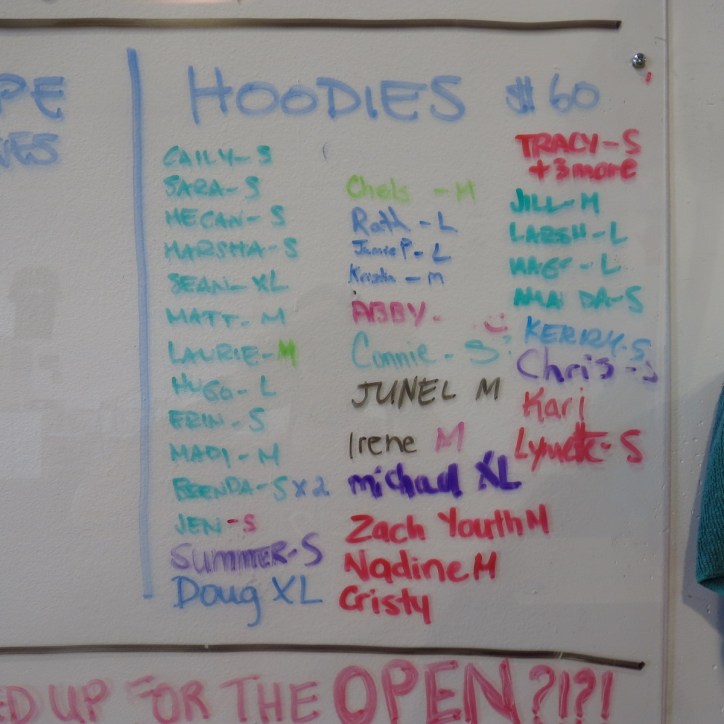 PE
ES
HOODIES $60
CAILY-S
SARA-S
MEGAN-S
MARSHA-S
SEAN-XL
MATT-M
LAURIE-M
HUGO-L
ERIN-S
MADI-M
BRENDA-S X 2
JEN-S
SUMMER-S
Doug XL
Chels - M
Ruth - L
Jamie P. - L
Kristin - M
ABBY-
Connie - S
JUNEL M
Irene M
michael XL
Zach Youth M
Nadine M
Cristy
TRACY-S
+3more
JILL-M
L
- L
AMANDA-S
KERRY-S
Chris - S
Kari
Lynette-S
ED UP FOR THE OPEN?!?!